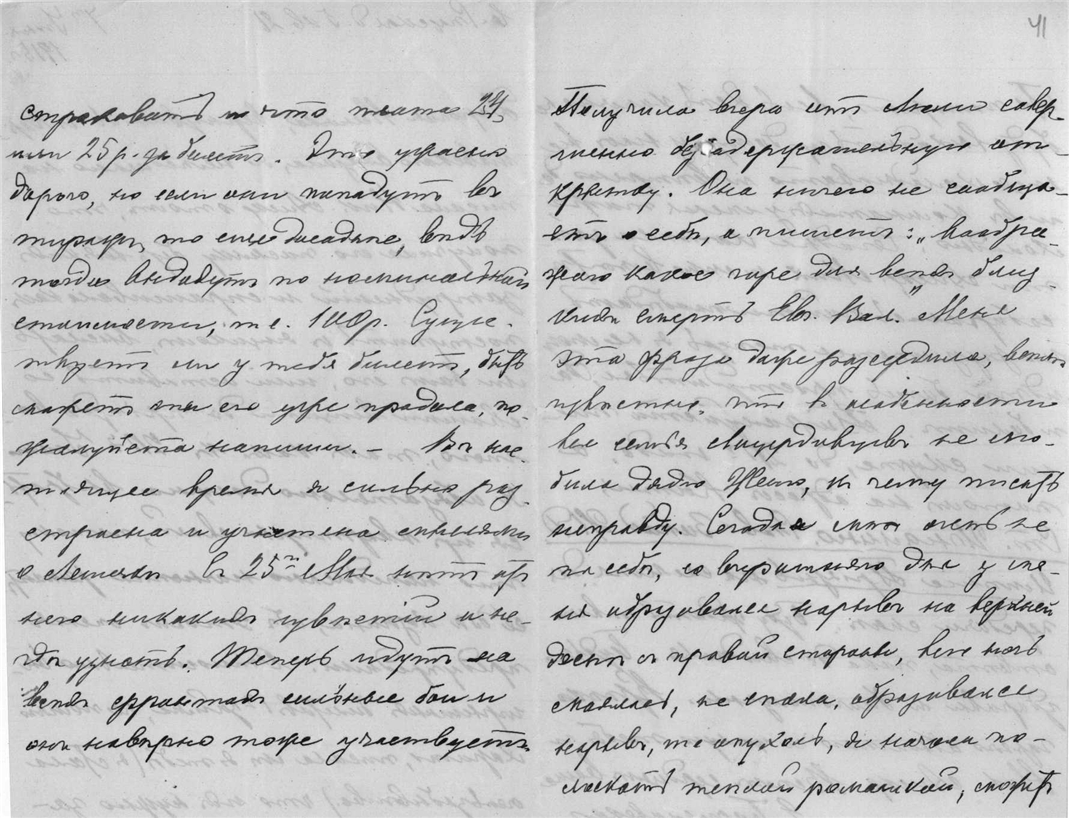 41
страховать и что плата 24,
или 25 р. за билетъ. Это ужасно
дорого, но если они попадутъ въ
тиражъ, то еще досаднѣе, вѣдь
тогда выдадутъ по номинальной
стоимости, т. е. 100 р. Сущес-
твуетъ ли у тебя билетъ, быть
можетъ ты его уже продала, по-
жалуйста напиши. — Въ нас-
тоящее время я сильно раз-
строена и
о
Съ 25го Мая нѣтъ отъ
него никакихъ извѣстій и не-
гдѣ узнать. Теперь идутъ на
всѣхъ фронтахъ сильные бои и
онъ навѣрно тоже участвуетъ
Получила вчера отъ Лили совер-
шенно бездержательную от-
крытку. Она ничего не сообща-
етъ о себѣ, а пишетъ: „Вообра-
жаю какое горе для всѣхъ близ-
кихъ смерть Евг. Вал." Меня
эта фраза даже разсердила, всѣмъ
извѣстно, что въ особенности
вся семья не лю-
била дядю Женю, къ чему писать
неправду. Сегодня мнѣ очень не
по себѣ, со вчерашняго дня у ме-
ня образовался нарывъ на верхней
деснѣ съ правой стороны, всю ночь
маялась, не спала, образовался
нарывъ, то опухоль, я начала по-
лоскать теплой ромашкой, можетъ